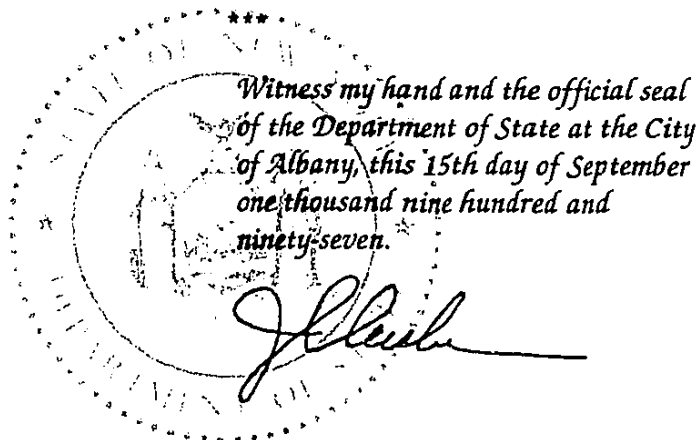 ***
Witness my hand and the official seal
of the Department of State at the City
of Albany, this 15th day of September
one thousand nine hundred and
ninety-seven.